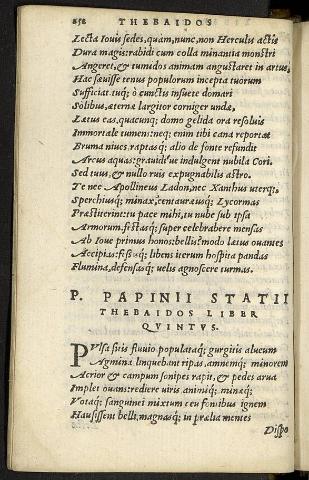 252 THEBAIDOS
Lecta Iouis sedes, quàm, nunc, non Herculis actis
Dura magis: rabidi cum colla minantia monstri
Angeret, & tumidos animam angustaret in artus,
Hac sæuisse tenus populorum incepta tuorum
Sufficiat tuq; ô cunctis insuete domari
Solibus, æternæ largitor corniger undæ,
Lætus eas, quacunq; domo gelida ora resoluis
Immortale tumens: neq; enim tibi cana reportat
Bruma niues, raptasq; alio de fonte refundit
Arcus aquas: grauidi´ue indulgent nubila Cori.
Sed tuus, & nullo ruis expugnabilis astro.
Te nec Apollineus Ladon, nec Xanthus uterq;,
Sperchiusq; minax, centaureusq; Lycormas
Præstiterint: tu pace mihi, tu nube sub ipsa
Armorum, festasq; super celebrabere mensas
Ab Ioue primus honos: bellis modo lætus ouantes
Accipias: fessisq; libens iterum hospita pandas
Flumina, defensasq; uelis agnoscere turmas.
P. PAPINII STATII
THEBAIDOS LIBER
QVINTVS.
PVlsa sitis fluuio populataq; gurgitis alueum
Agmina linquebant ripas, amnemq; minorem
Acrior & campum sonipes rapit, & pedes arua
Implet ouans: rediere uiris animiq; minæq;
Votaq; sanguineis mixtum ceu fontibus ignem
Hausissent belli, magnasq; in prælia mentes
Dispo